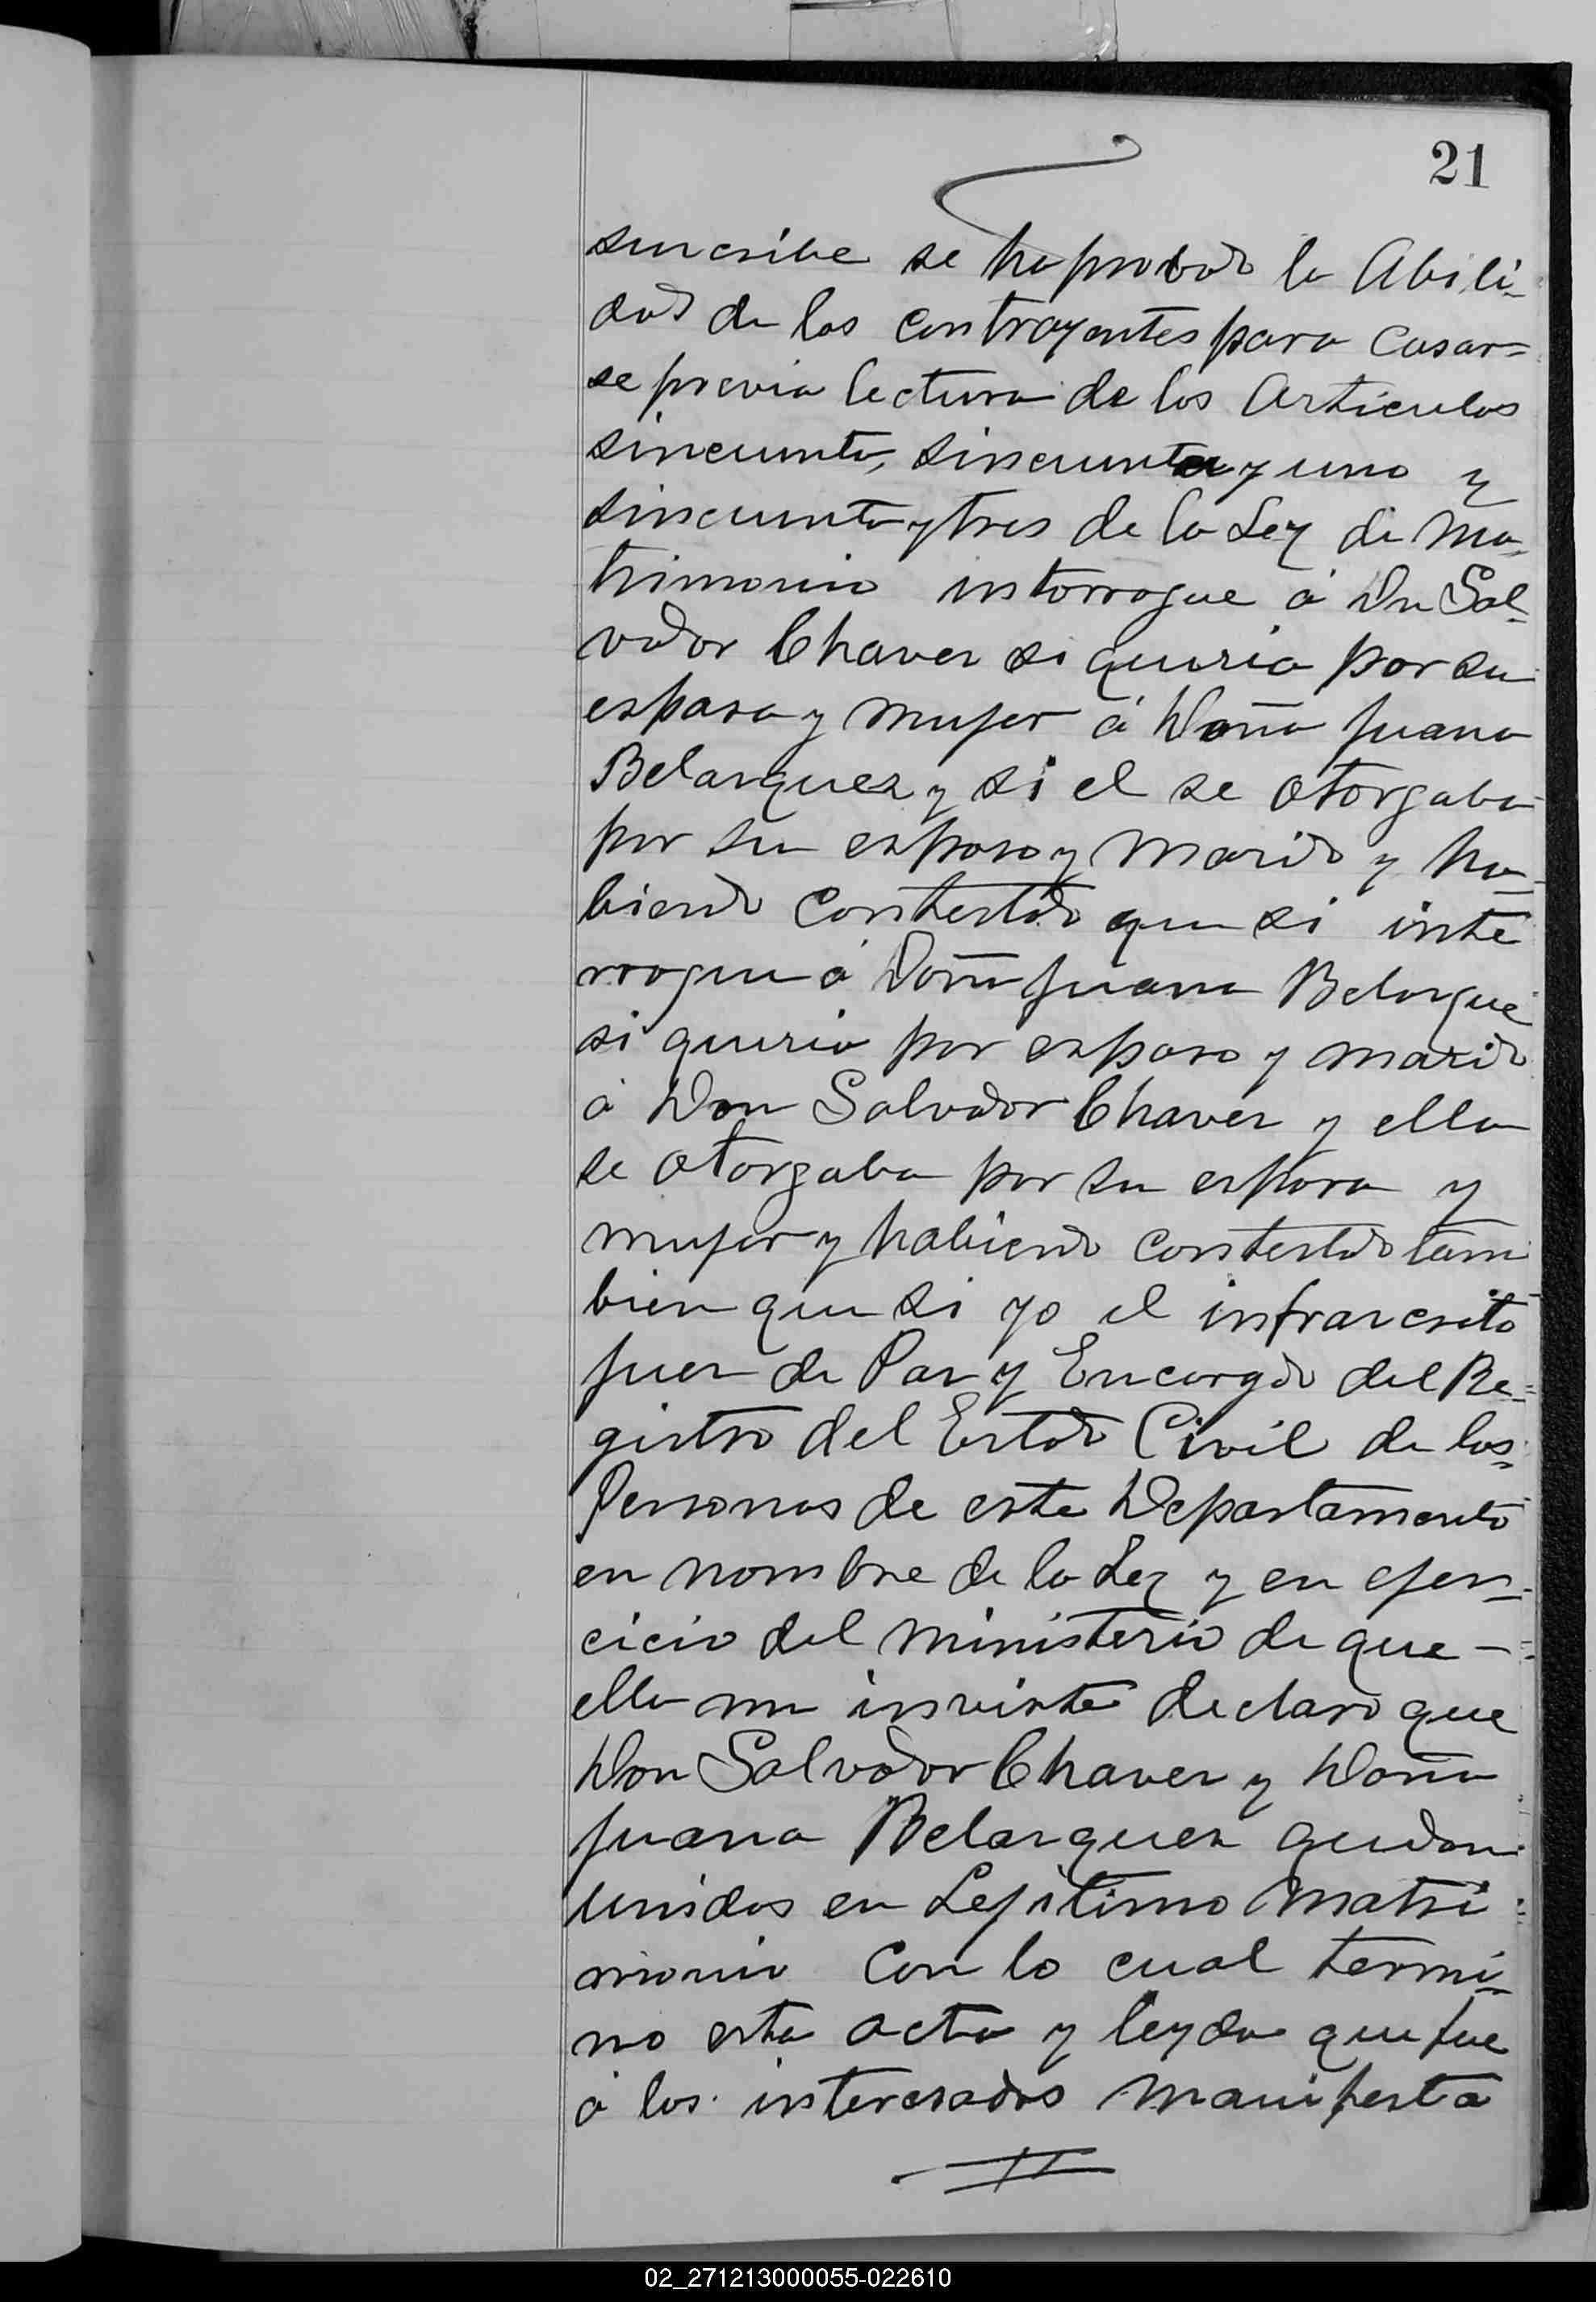 21
suscribe se ha probado la Abili-
dad de los contrayentes para casar=
se previa lectura de los Articulos
sincuenta, sincuenta y uno y
sincuenta y tres de la Ley de Ma-
trimonio interrogue á Dn Sal-
vador Chavez si queria por su
esposa y mujer á Doña Juana
Belazquez y si el se otorgaba
por su esposo y marido y ha-
biendo contestado que si inte
rrogue á Doña Juana Belazque
si queria por esposo y marido
á Don Salvador Chavez y ella
se otorgaba por su esposa y
mujer y habiendo contestado tam
bien que si yo el infrascrito
Juez de Paz y Encargado del Re=
gistro del Estado Civil de las
Personas de este Departamento
en nombre de la Ley y en ejer-
cicio del ministerio de que -
ella me inviste declaro que
Don Salvador Chavez y Doña
Juana Belazquez quedan
unidos en Lejitimo Matri
monio Con lo cual termi-
no esta acta y leyda que fue
á los interesados manifesta
02_271213000055-022610